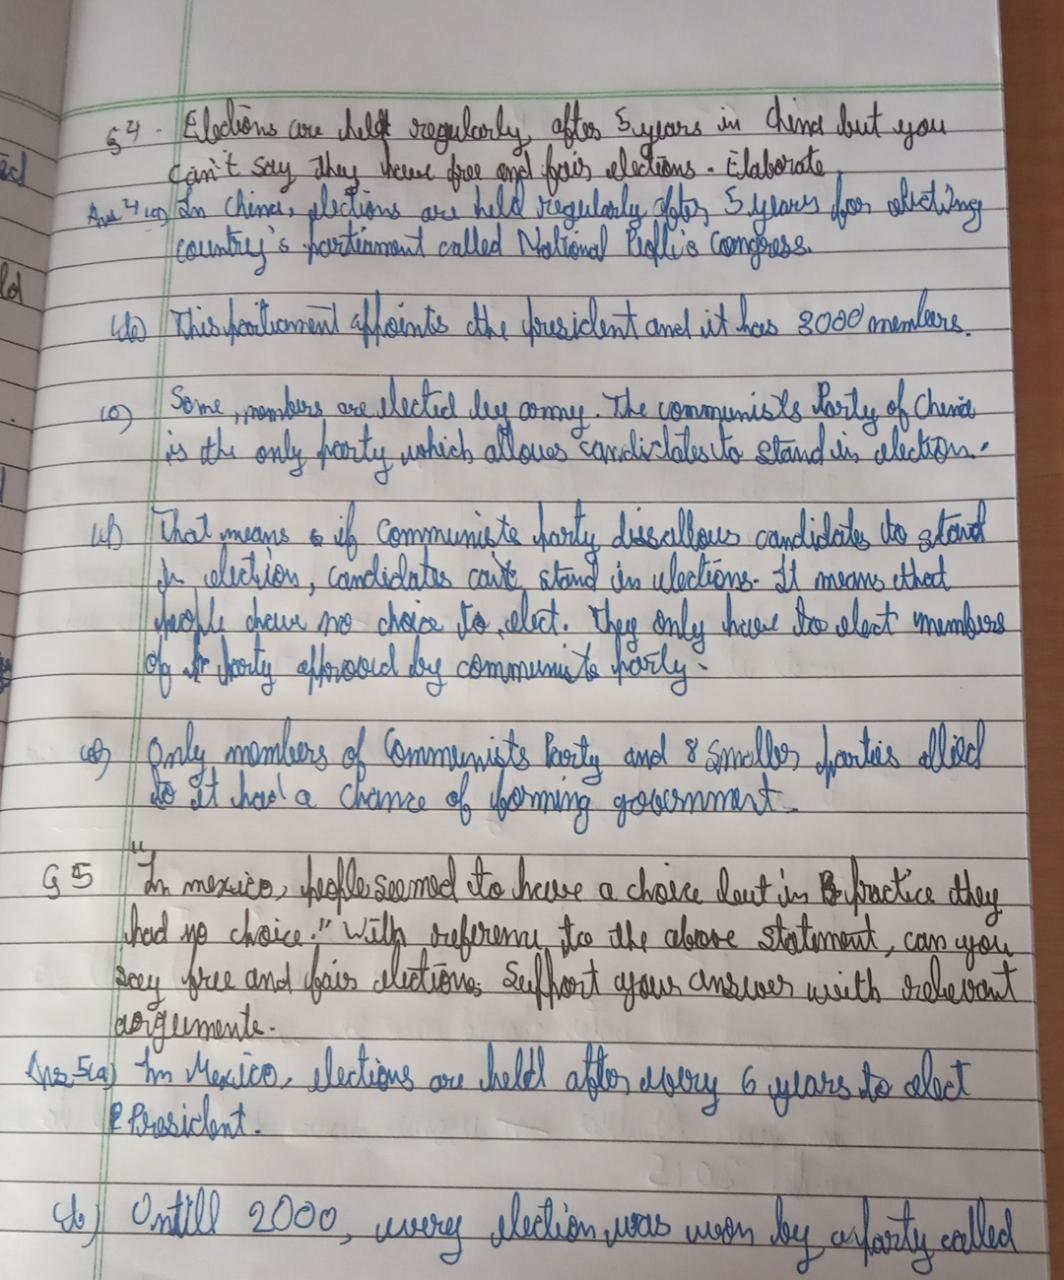 Q4. Elections are held regularly after 5 years in China but you
can't say they have free and fair elections. Elaborate
Ans 4 (a) In China, elections are held regularly after 5 years for electing
country's parliament called National People's Congress.
(b) This parliament appoints the president and it has 3000 members.
(c) Some members are elected by army. The communists Party of China
is the only party which allows candidates to stand in election.
(d) That means if Communists party dissallows candidates to stand
in election, candidates can't stand in elections. It means that
people have no choice to elect. They only have to elect members
of party approved by communists party.
(e) Only members of Communists Party and 8 smaller parties allied
to it had a chance of forming government.
Q5 "In mexico, people seemed to have a choice but in practice they
had no choice." With reference to the above statement, can you
say free and fair elections. Support your answer with relevant
arguments.
Ans 5(a) In Mexico, elections are held after every 6 years to elect
President.
(b) Untill 2000, every election was won by a party called
ed
ld